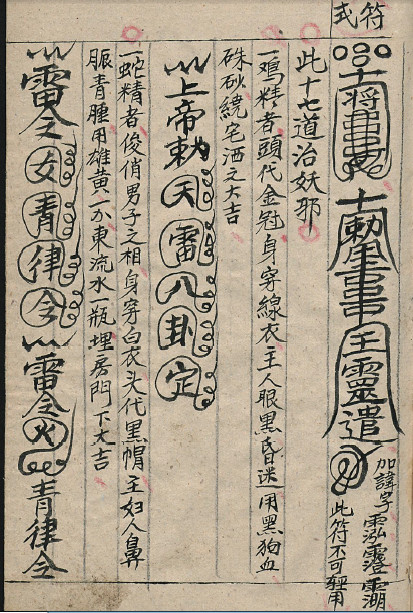 符式
士將
士勅
王靈遣
加諱字
此符不可輕用
此十七道治妖邪
一鳮精者頭代金冠身穿線衣主人眼黑昏迷用黑狗血
硃砂繞宅洒之大吉
上帝勅天雷八卦定
一蛇精者俊俏男子之相身穿白衣头代黑帽主妇人鼻
脤青腫用雄黃一分東流水一瓶埋房門下大吉
雷令女青律令雷令火青律令